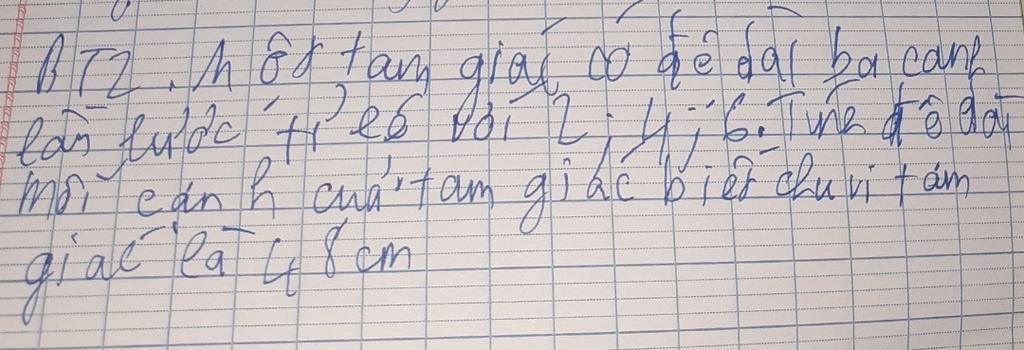 BT2. Một tam giác có độ dài ba cạnh
lần lượt tỉ lệ với 2; 4; 6. Tính độ dài
mỗi cạnh của tam giác biết chu vi tam
giác là 48cm